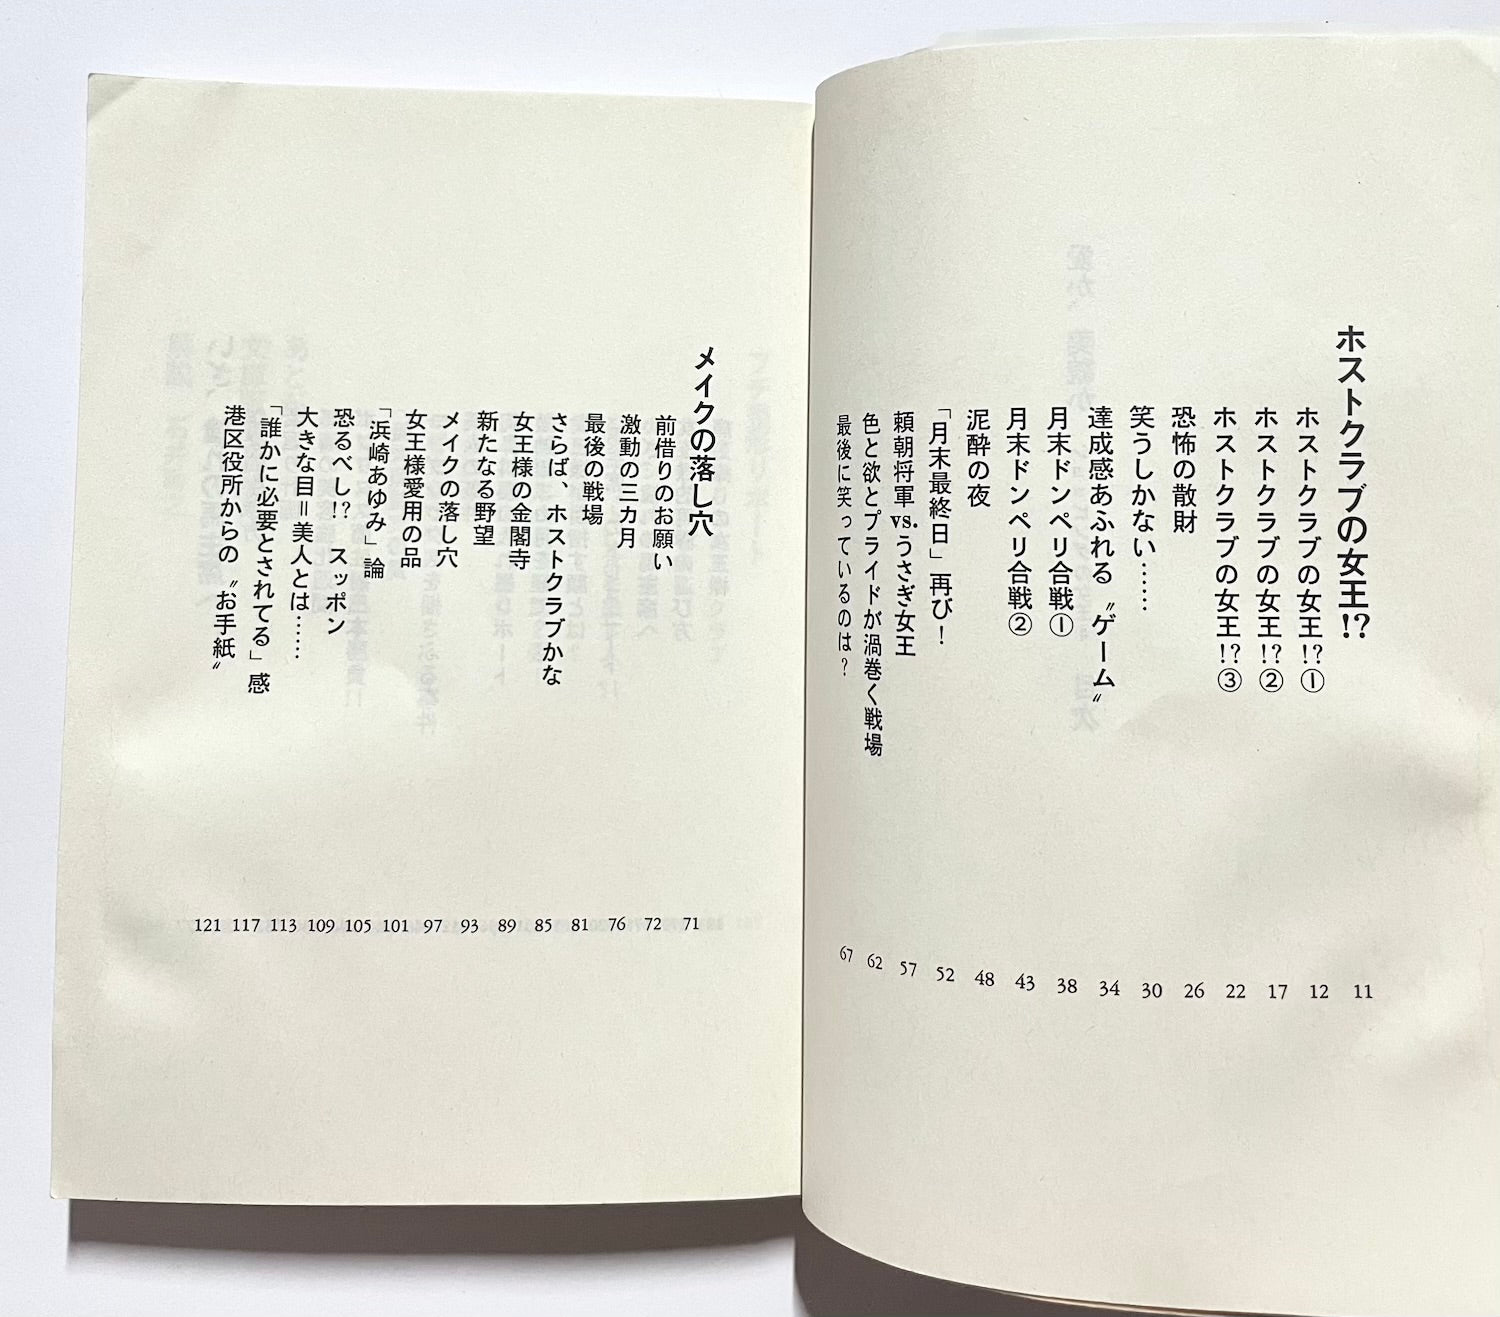 ホストクラブの女王!? 11
ホストクラブの女王!?① 12
ホストクラブの女王!?② 17
ホストクラブの女王!?③ 22
恐怖の散財 26
笑うしかない…… 30
達成感あふれる〝ゲーム〟 34
月末ドンペリ合戦① 38
月末ドンペリ合戦② 43
泥酔の夜 48
「月末最終日」再び! 52
頼朝将軍vs.うさぎ女王 57
色と欲とプライドが渦巻く戦場 62
最後に笑っているのは? 67
メイクの落し穴 71
前借りのお願い 72
激動の三カ月 76
最後の戦場 81
さらば、ホストクラブかな 85
女王様の金閣寺 89
新たなる野望 93
メイクの落し穴 97
女王様愛用の品 101
「浜崎あゆみ」論 105
恐るべし!? スッポン 109
大きな目=美人とは…… 113
「誰かに必要とされてる」感 117
港区役所からの〝お手紙〟 121